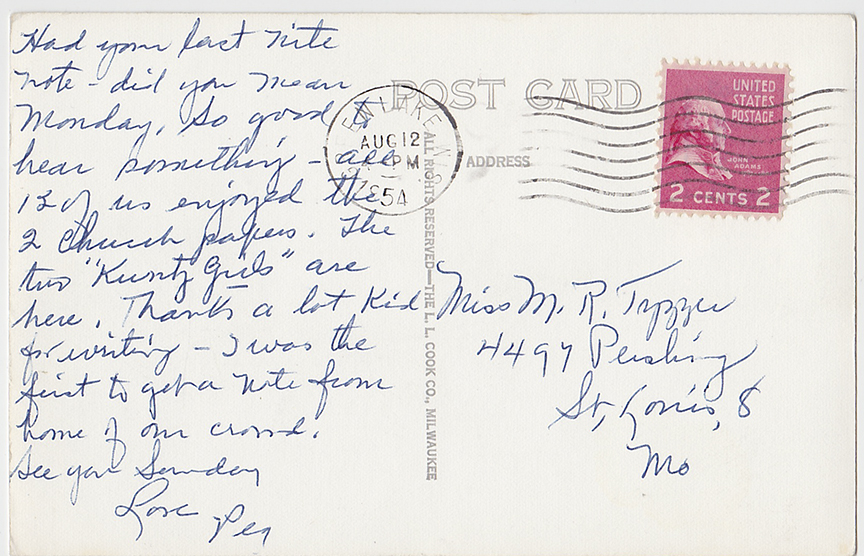 Had your last nite
note - did you mean
Monday, So good to
hear something - all
13 of us enjoyed the
2 Church papers. The
two "Kuntz Girls" are
here. Thanks a lot Kid
for writing - I was the
first to get a note from
home of our crowd.
See you Sunday
Love
Peg
POST CARD
ADDRESS
ALL RIGHTS RESERVED—THE L. L. COOK CO., MILWAUKEE
GREEN LAKE
AUG 12
PM
1954
WIS.
UNITED
STATES
POSTAGE
JOHN
ADAMS
2 CENTS 2
Miss M. R.
4497 Pershing
St, Louis, 8
Mo